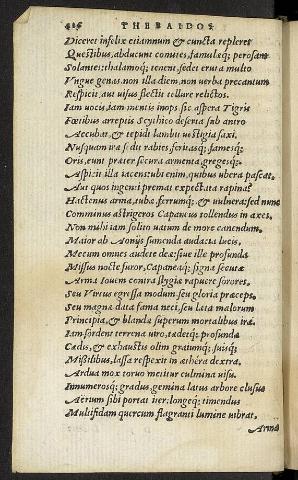 426 THEBAIDOS
Diceret infelix etiamnum & cuncta repleret
Questibus, abducunt comites, famulæq; perosam
Solantes: thalamoq; tenent. sedet eruta multo
Vngue genas. non illa diem, non uerba precantum
Respicit, aut uisus flectit tellure relictos.
Iam uocis, iam mentis inops. sic aspera Tigris
Fœtibus arreptis Scythico deserta sub antro
Accubat, & tepidi lambit uestigia saxi.
Nusquam iræ, sedit rabies, feritasq; famesq;
Oris, eunt præter secura armenta, gregesq;.
Aspicit illa iacens: ubi enim, quibus ubera pascat.
Aut quos ingenti premat expectata rapina?
Hactenus arma, tubæ, ferrumq;, & uulnera: sed nunc
Comminus astrigeros Capaneus tollendus in axes.
Non mihi iam solito uatum de more canendum.
Maior ab Aonijs sumenda audacia lucis.
Mecum omnes audete deæ: siue ille profunda
Missus nocte furor, Capaneaq; signa secutæ
Arma Iouem contra stygiæ rapuere sorores.
Seu Virtus egressa modum. seu gloria præceps.
Seu magna data fama neci. seu læta malorum
Principia, & blandæ superum mortalibus iræ.
Iam sordent terrena uiro, tædetq; profundæ
Cædis, & exhaustis olim graiumq; suisq;
Missilibus, lassa respexit in æthera dextra.
Ardua mox toruo metitur culmina uisu.
Innumerosq; gradus, gemina latus arbore clusus
Aërium sibi portat iter: longeq; timendus
Multifidam quercum flagranti lumine uibrat.
Arma